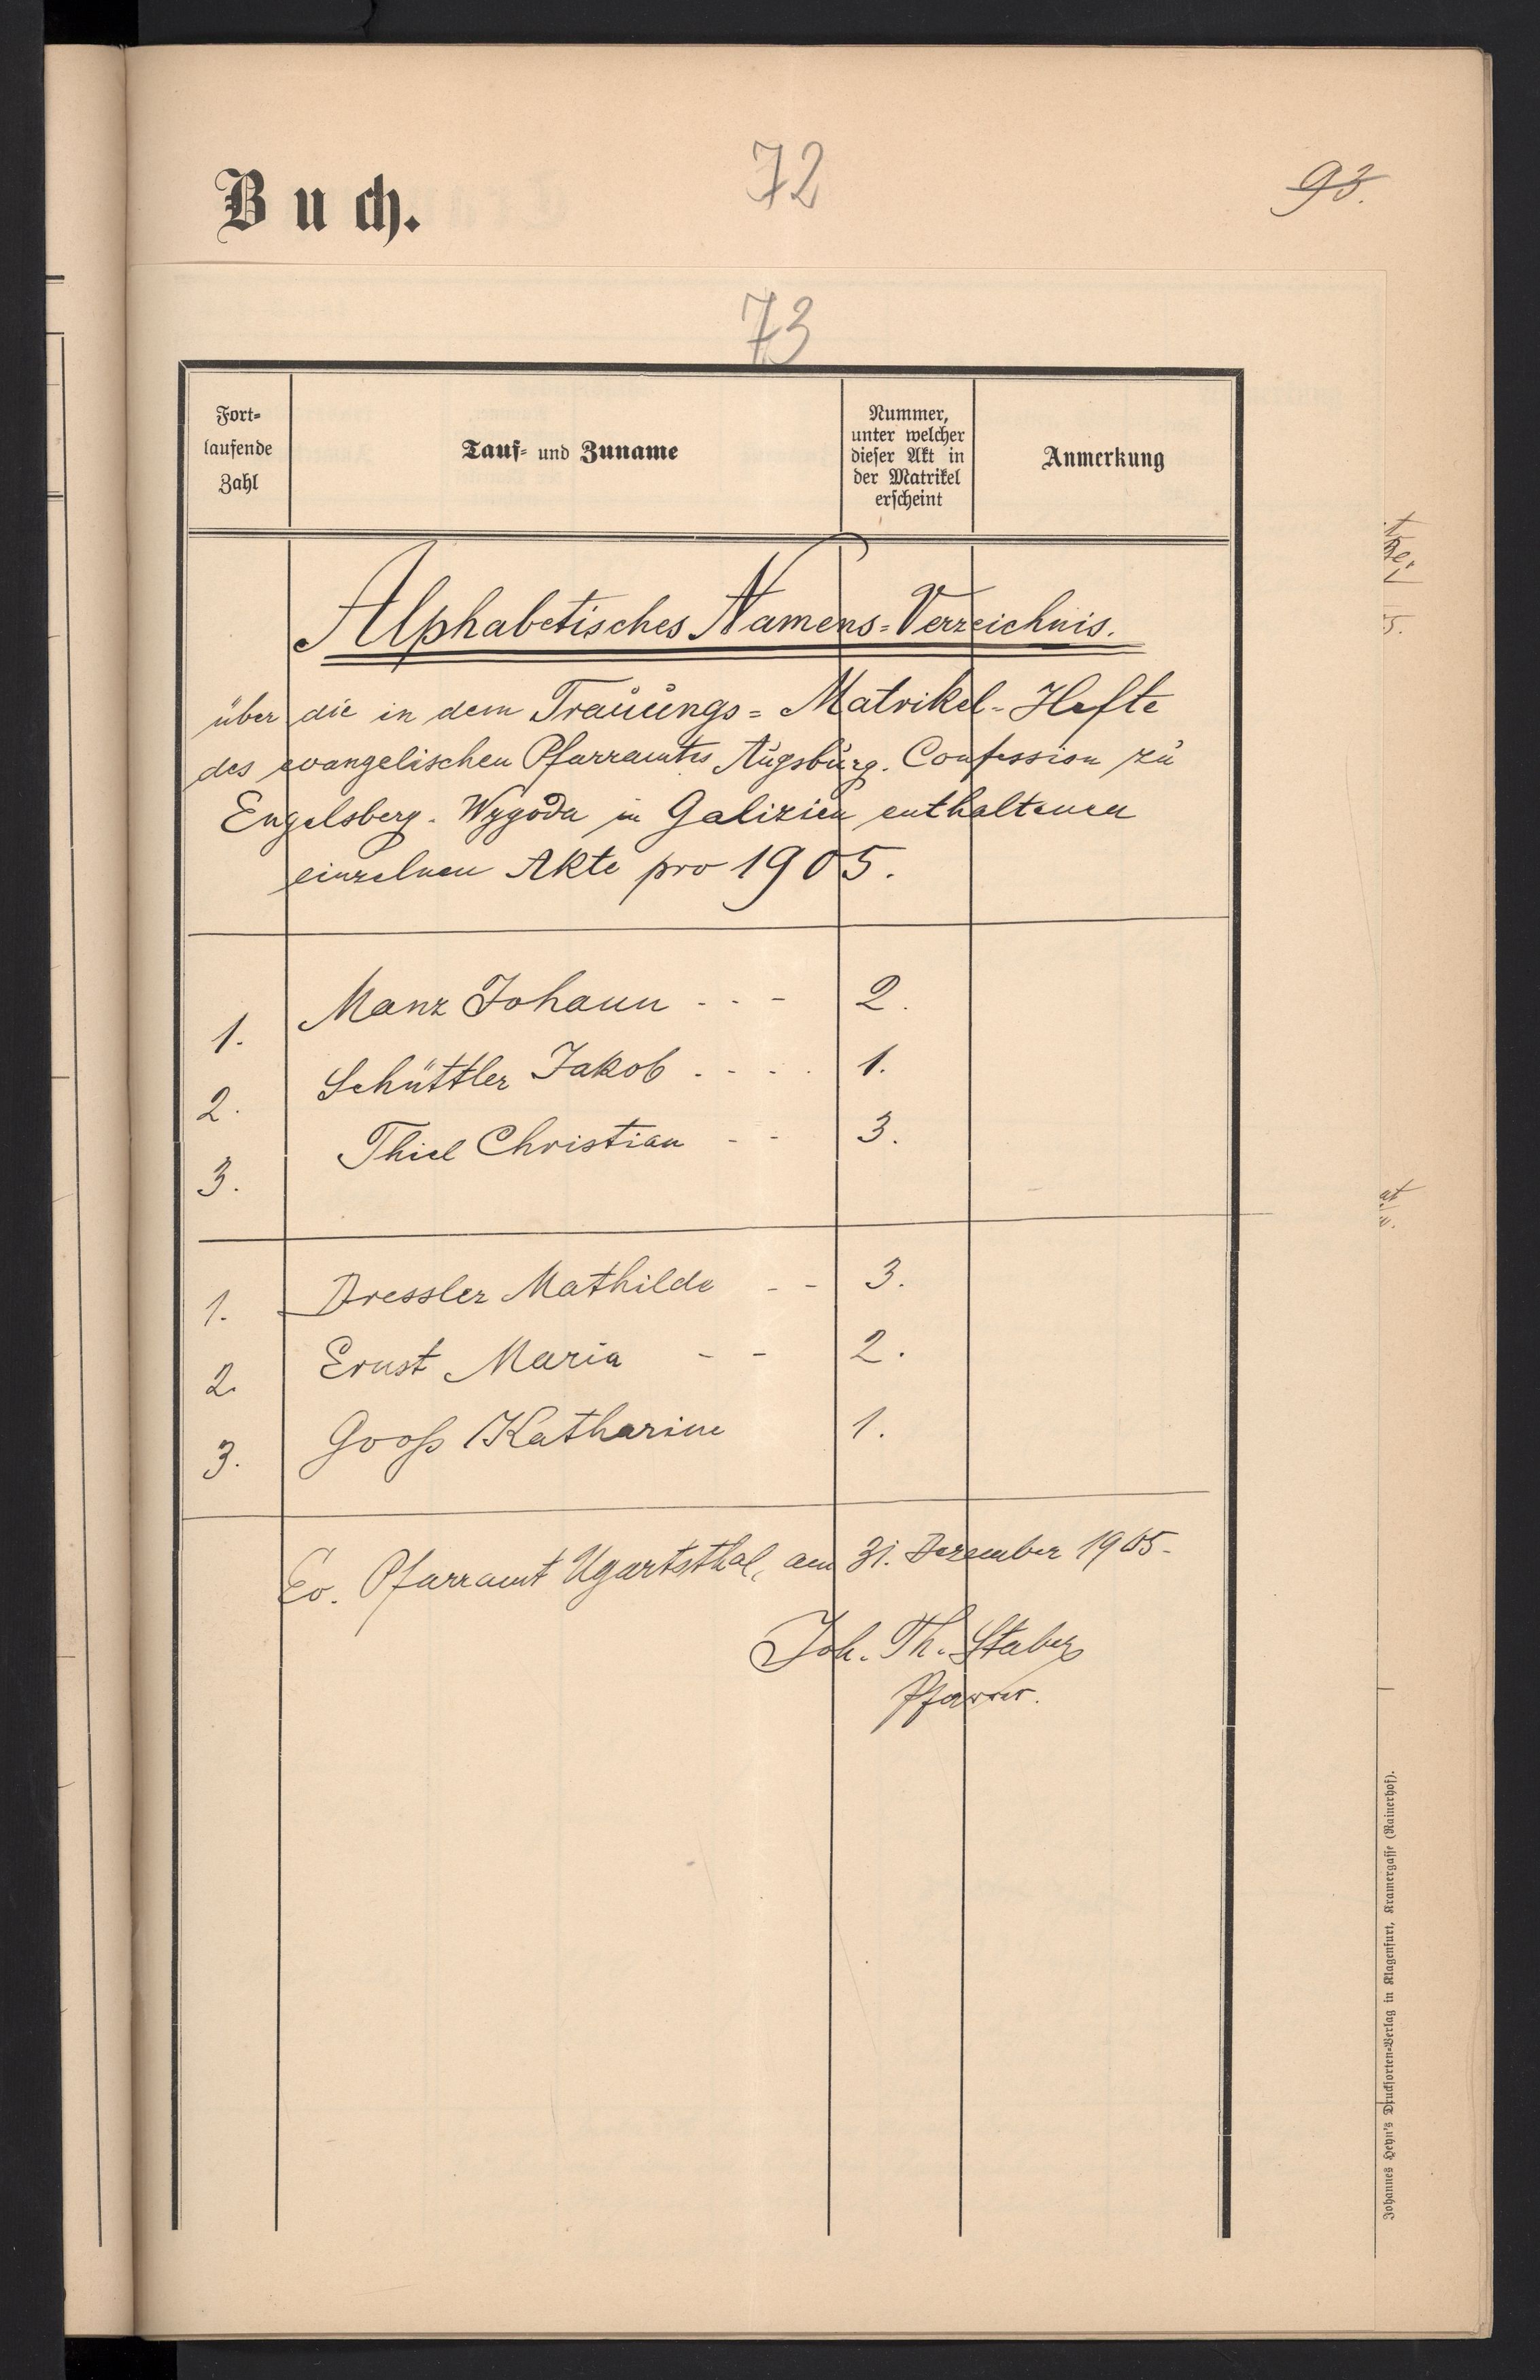 Buch.
72
93.
73
Fort-
laufende
Zahl
Tauf- und Zuname
Nummer,
unter welcher
dieser Akt in
der Matrikel
erscheint
Anmerkung
Alphabetisches Namens-Verzeichnis.
über die in dem Trauungs-Matrikel-Hefte
des evangelischen Pfarramtes Augsburg. Confession zu
Engelsberg. Wygoda in Galizien enthaltenen
einzelnen Akte pro 1905.
1. Manz Johann - - - 2.
2. Schüttler Jakob - - - - 1.
3. Thiel Christian - - 3.
1. Dressler Mathilde - - 3.
2. Ernst Maria - - 2.
3. Gooß Katharine 1.
Ev. Pfarramt Ugartsthal, am 31. Dezember 1905.
Joh. Th. Staber
Pfarrer.
Johannes Heyn's Drucksorten-Verlag in Klagenfurt, Kramergasse (Rainerhof).